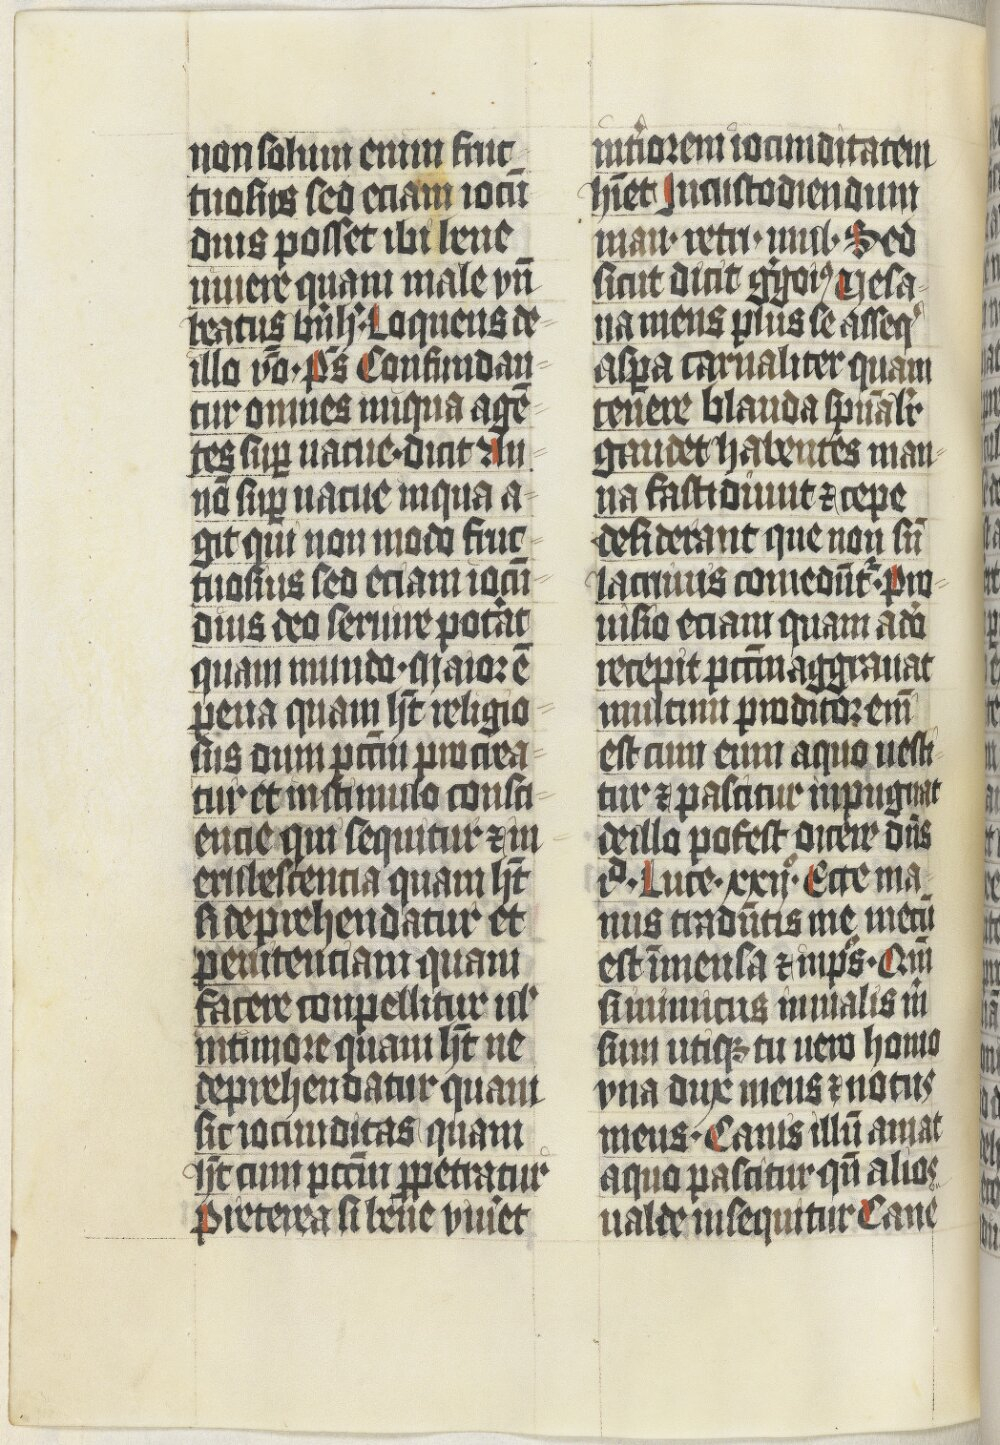 non solum enim fruc
tuosius sed eciam iocū
dius posset ibi bene
uiuere quam male vn̄
beatus b̾nh̾. Loquens de
illo v̾o. p̄s Confundan
tur omnes iniqua agē
tes sup̱ uacue. dicit Au
nō sup̱ uacue iniqua a
git qui non modo fruc
tuosius sed eciam iocū
dius deo seruire pot̾at
quam mundo. Maior ē
pena quam h̄t religio
sus dum pctm̄ procrea
tur et in stimulo consci
encie qui sequitur ⁊ in
erubescencia quam h̄t
si deprehendatur et
penitenciam quam
facere conpellitur ul̾
in timore quam h̄t ne
deprehendatur quam
sit iocunditas quam
h̄t cum pctm̄ ꝑpetratur
Preterea si bene viu̾et
iocunditatem
h̄iet In custodiendum
Sed
sicut dicit g̾goiꝰ Uesa
na mens plus se asseq̾
asp̱a carnaliter quam
ten̾ere blanda sp̄nal̾r
gaudet habentes man
na fastidiunt ⁊ cepe
desiderant que non sn̄
lacrimis comedūt̾. Pro
uisio eciam quam a do̾
recepit pctm̄ aggrauat
multum proditor em̄
est cum eum a quo uesti
tur ⁊ pascitur inpugnat
de illo potest dicere dn̄s
Luce. xxijͦ. Ecce ma
nus tradētis me mecū
est ī mensa ⁊ in pͦs. Qm̄
si inimicus
sum utiqꝫ tu uero homo
vna dux meus ⁊ notus
meus. Canis illū amat
a quo pascitur qn̄ alios
ualde insequitur Cane